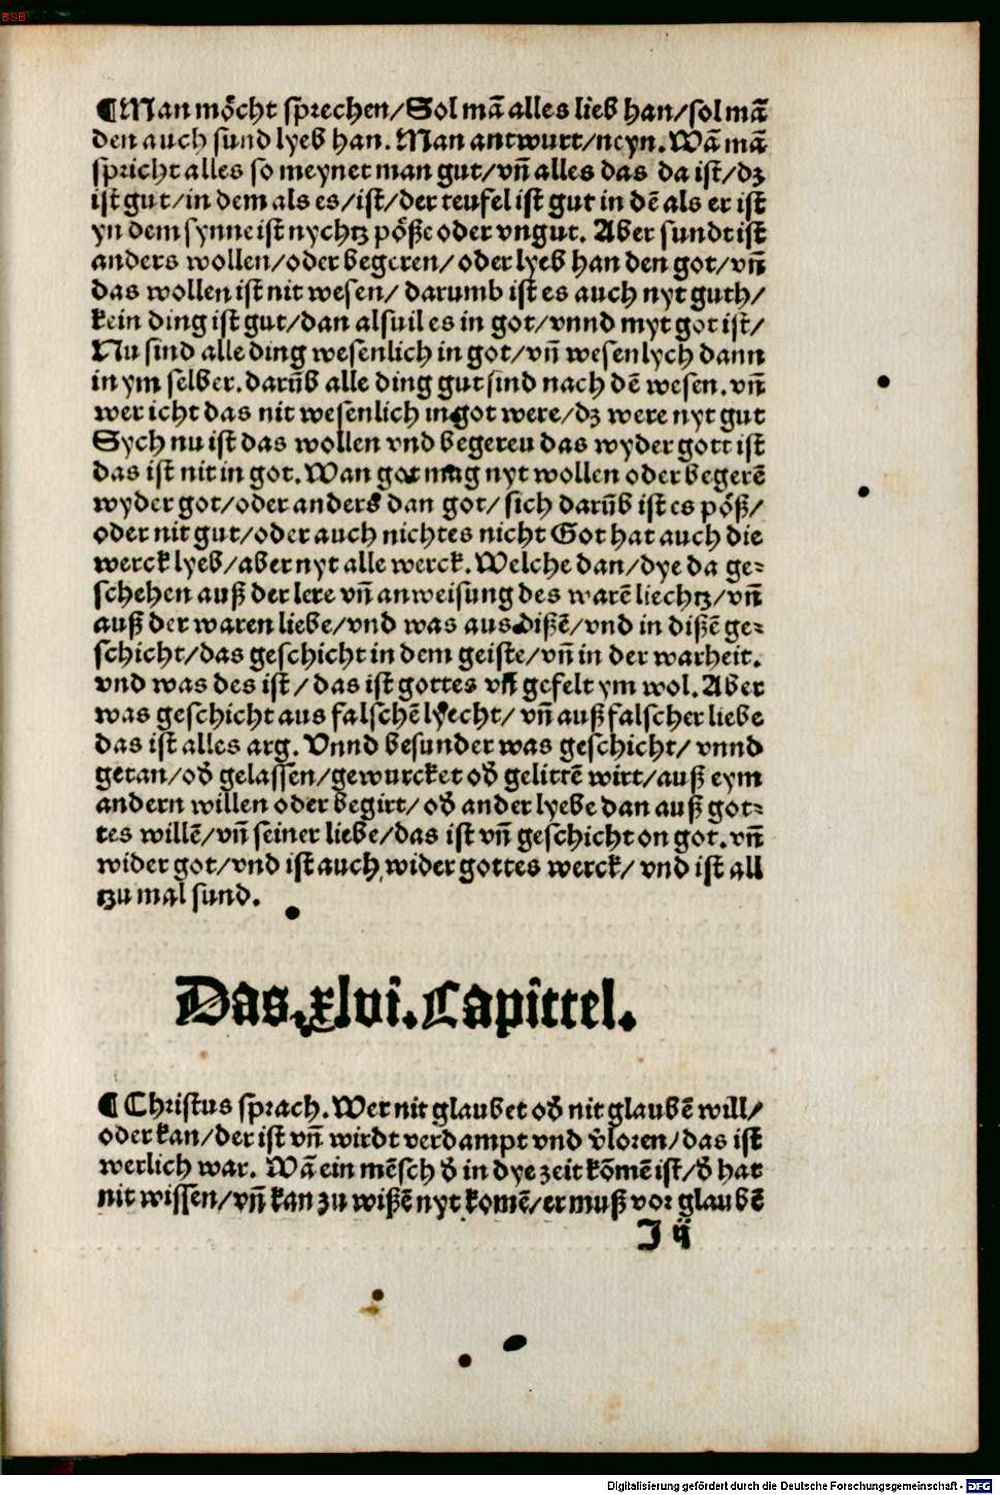 BSB
¶Man mo᷑cht sprechen/Sol mā alles lieb han/sol mā
den auch sund lyeb han. Man antwurt/neyn. Wā mā
spricht alles so meynet man gut/vn̄ alles das da ist/dz
ist gut/in dem als es/ist/der teufel ist gut in dē als er ist
yn dem synne ist nychtz pößze oder vngut. Aber sundt ist
anders wollen/oder begeren/oder lyeb han den got/vn̄
das wollen ist nit wesen/ darumb ist es auch nyt guth/
kein ding ist gut/dan alsuil es in got/vnnd myt got ist/
Nu sind alle ding wesenlich in got/vn̄ wesenlych dann
in ym selber. darūb alle ding gut sind nach dē wesen. vn̄
wer icht das nit wesenlich in got were/dz were nyt gut
Sych nu ist das wollen vnd begereu das wyder gott ist
das ist nit in got. Wan got mag nyt wollen oder begerē
wyder got/oder anders dan got/ sich darūb ist es pöß/
oder nit gut/oder auch nichtes nicht Got hat auch die
werck lyeb/aber nyt alle werck. Welche dan/dye da ge⸗
schehen auß der lere vn̄ anweisung des warē liechtz/vn̄
auß der waren liebe/vnd was aus dißē/vnd in dißē ge⸗
schicht/das geschicht in dem geiste/vn̄ in der warheit.
vnd was des ist / das ist gottes vn̄ gefelt ym wol. Aber
was geschicht aus falschē lyecht/ vn̄ auß falscher liebe
das ist alles arg. Vnnd besunder was geschicht/ vnnd
getan/od̄ gelassen/gewurcket od̄ gelittē wirt/auß eym
andern willen oder begirt/ od̄ ander lyebe dan auß got⸗
tes willē/vn̄ seiner liebe/das ist vn̄ geschicht on got. vn̄
wider got/vnd ist auch wider gottes werck/ vnd ist all
tzu mal sund.
Das.xlvi.Capittel.
¶Christus sprach. Wer nit glaubet od̄ nit glaubē will/
oder kan/der ist vn̄ wirdt verdampt vnd v̄loren/das ist
werlich war. Wā ein mēsch d̄ in dye zeit kōmē ist/d̄ hat
nit wissen/vn̄ kan zu wißē nyt komē/er muß vor glaubē
I ij
Digitalisierung gefördert durch die Deutsche Forschungsgemeinschaft - DFG